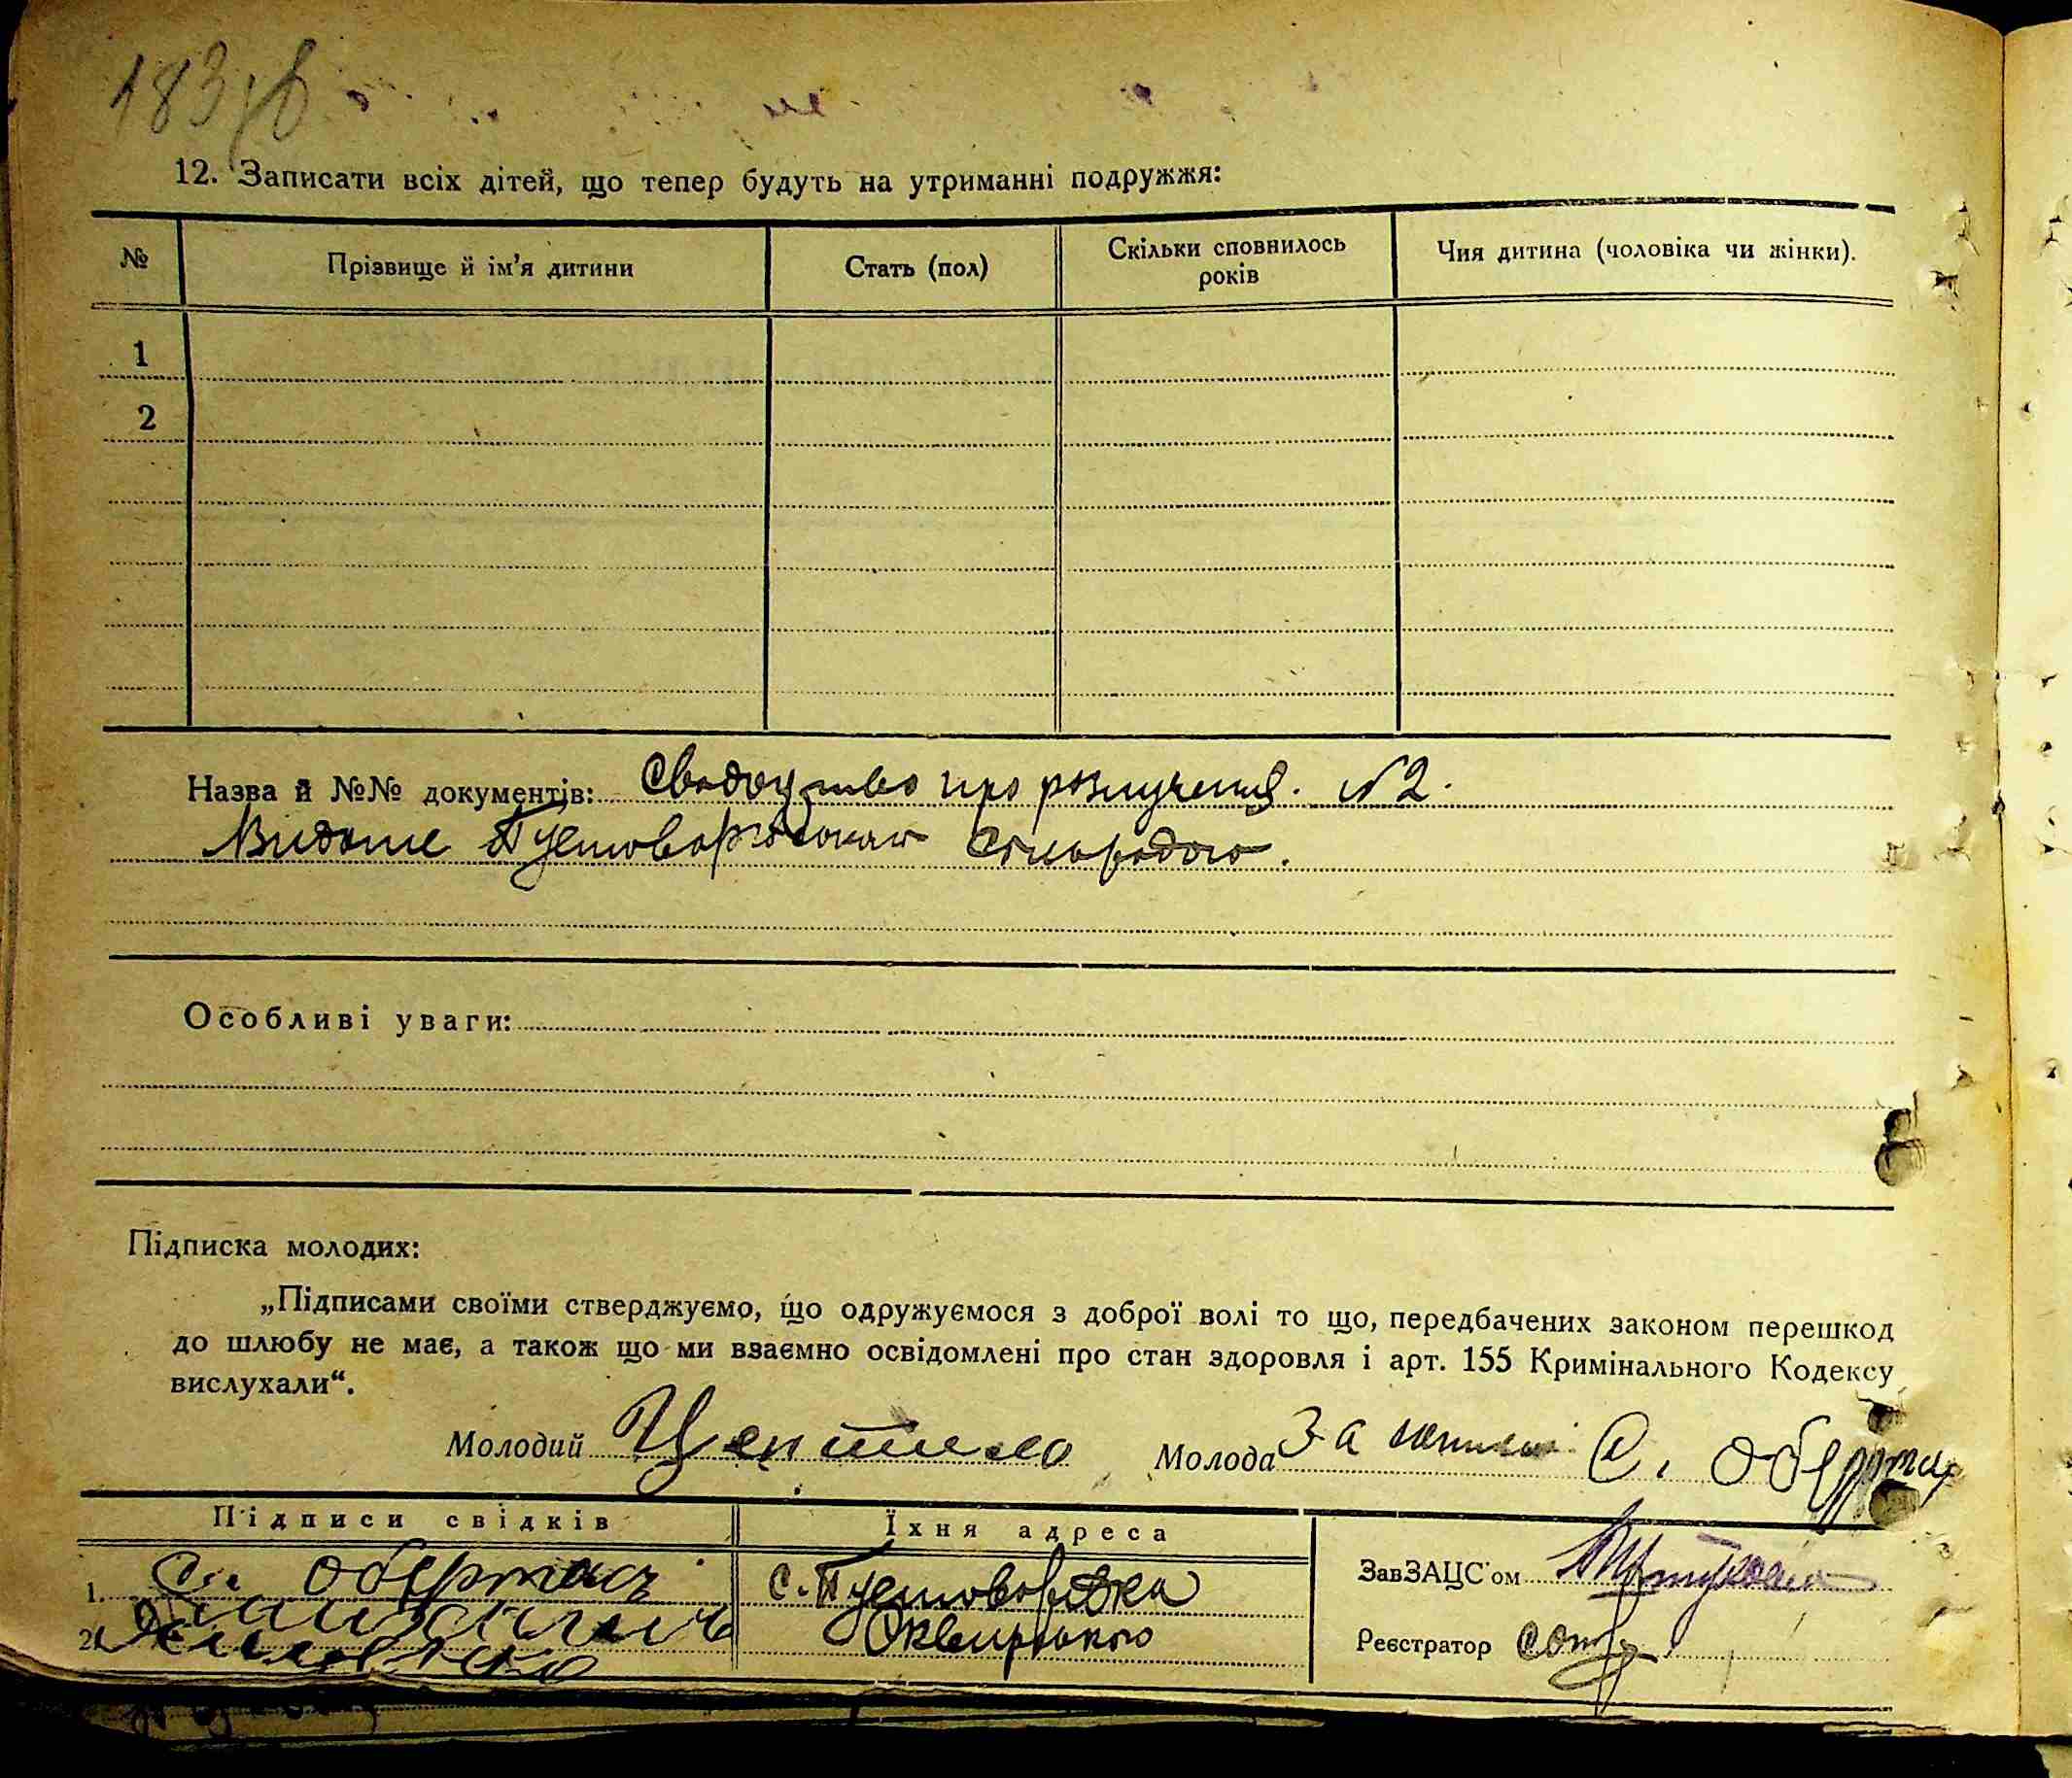 12. Записати всіх дітей, що тепер будуть на утриманні подружжя:
№ Прізвище й ім'я дитини Стать (пол) Скільки сповнилось років Чия дитина (чоловіка чи жінки).
1
2
Назва й №№ документів: Свадоцтво про розлучения. №2.
Видане Сільрадою.
Особливі уваги:
Підписка молодих:
„Підписами своїми стверджуємо, що одружуємося з доброї волі то що, передбачених законом перешкод
до шлюбу не має, а також що ми взаємно освідомлені про стан здоровля і арт. 155 Кримінального Кодексу
вислухали“.
Молодий Молода За С. Обертас
Підписи свідків Їхня адреса
1. С. Обертас с. Пустоварівка ЗавЗАЦС'ом
2. Сквирського Реєстратор